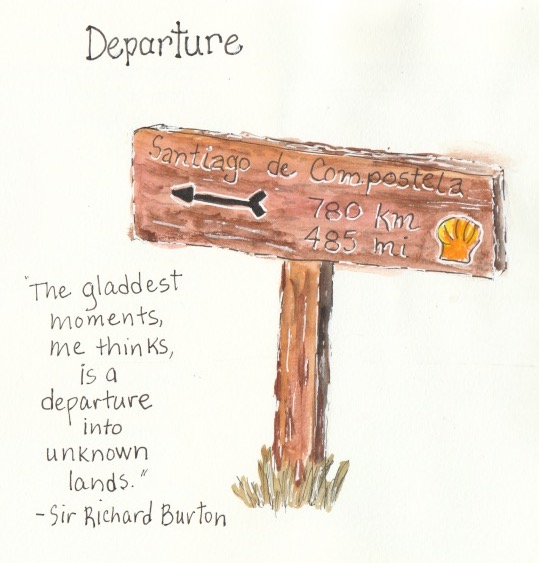 Departure
Santiago de Compostela
780 km
485 mi
"The gladdest
moments,
me thinks,
is a
departure
into
unknown
lands."
-Sir Richard Burton